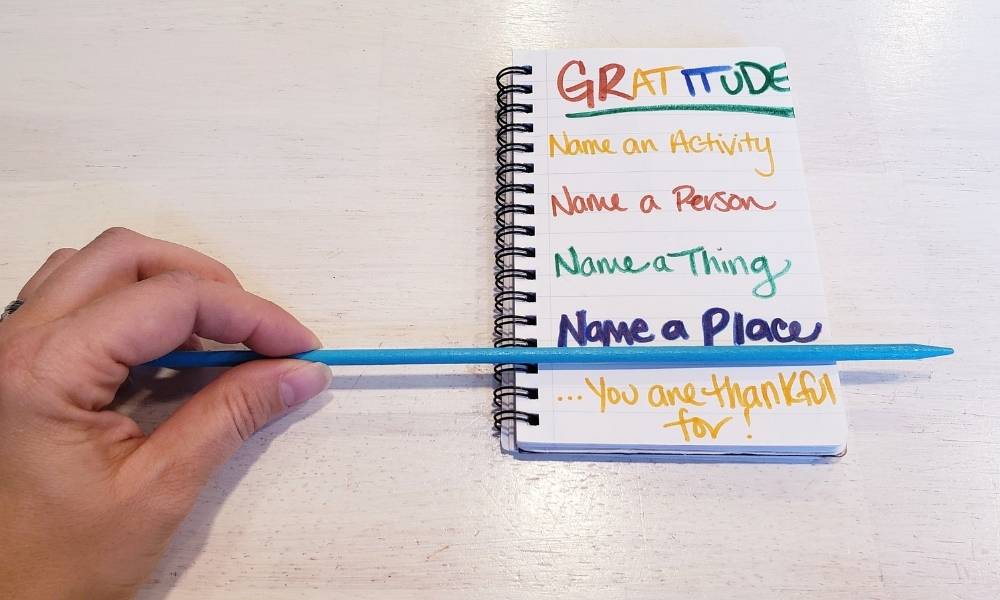 GRATITUDE
Name an Activity
Name a Person
Name a Thing
Name a Place
... You are thankful
for!